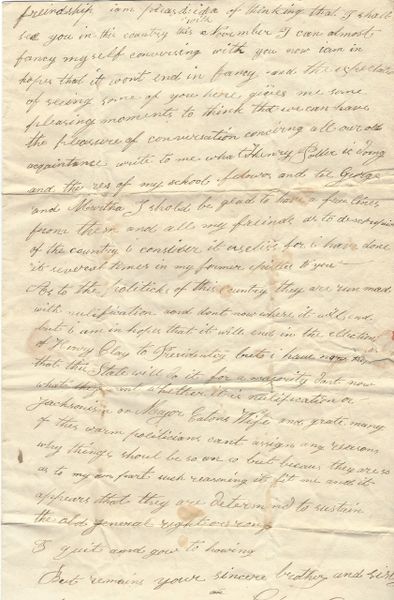 freindship i am pleasd idia of thinking that I shall
see you in this country this November I can almost
with
fancy myself conversing with you now i am in
hopes that it wont end in fancy and the expectation
of seeing some of you here gives me some
pleasing moments to think that we can have
the pleasure of conversation concerning all our old
acquaintance write to me what Henry Potter is doing
and the res of my school felows and tel George
and Martha I shold be glad to have a few lines
from them and all my freinds as to description
of the country i consider it useless for i have done
it several times in my former epistles to you
As to the politicks of this country they are run mad
with nulification and dont now where it will end
but i am in hopes that it will end in the election
of Henry Clay to Presidentcy but i have now
that this State will do it for a majority dont now
what they want whether it is nulification or
Jacksonism or Major Eatons Wife and grate many
of this warm politicians cant assign any reasons
why things shoul be so an so but becaus they are so
as to my own part such reasoning its fit me and it
appears that they are determnd to sustain
the old general right or rong
I quit and gow to howing
But remains your sincere brother and